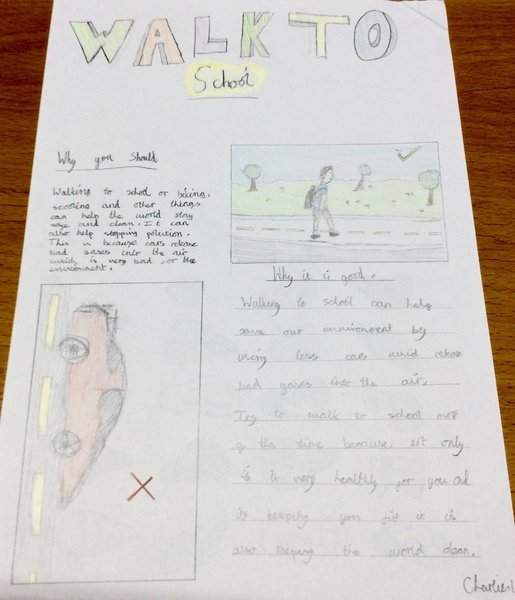 WALK TO
School
Why you should
Walking to school or biking,
scooting and other things
can help the world stay
safe and clean. It can
also help stopping pollution.
This is because cars release
bad gases into the air
which is very bad for the
environment.
Why it is good.
Walking to school can help
save our environment by
using less cars which release
bad gases into the air.
Try to walk to school most
of the time because not only
is it very healthy for you and
its keeping you fit it is
also keeping the world clean.
Charlie